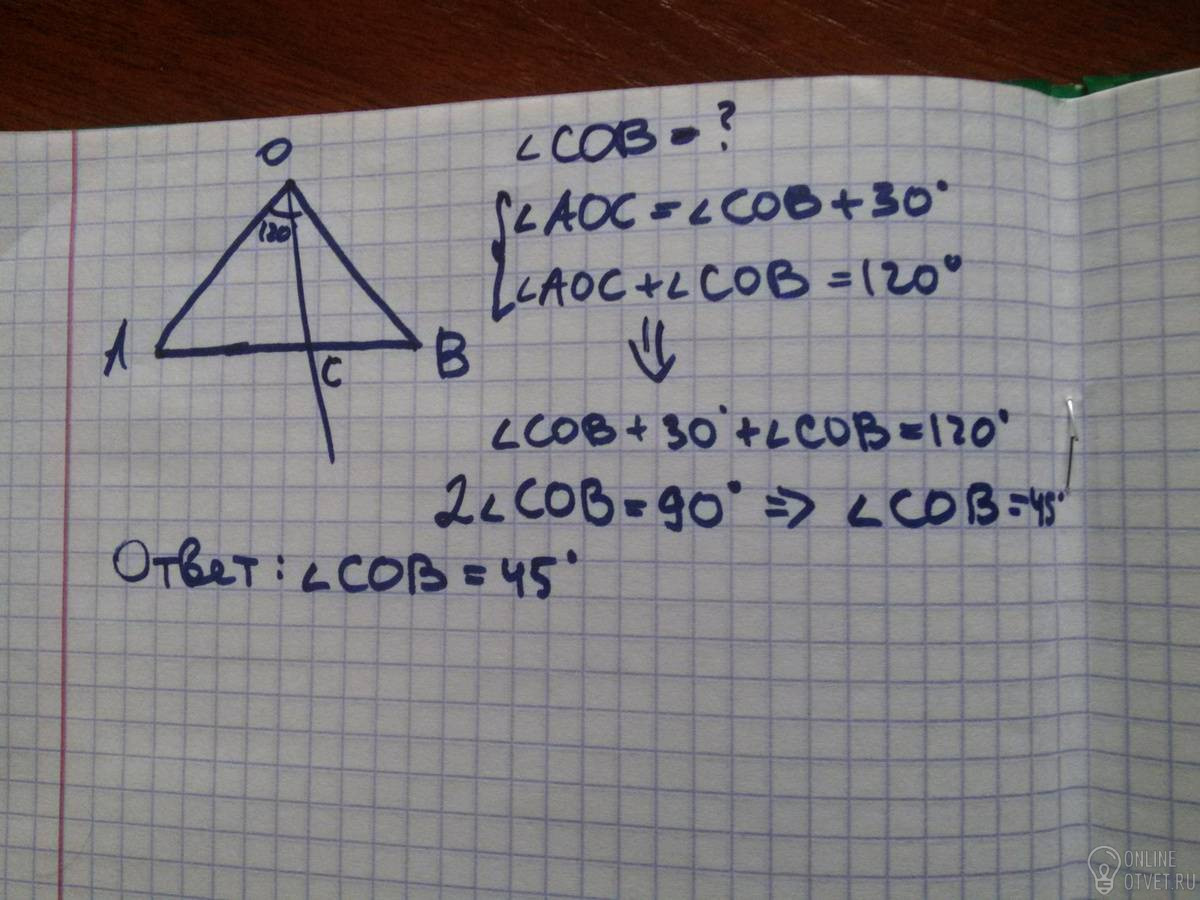 O
120
A
B
C
∠COB - ?
∠AOC = ∠COB + 30°
∠AOC + ∠COB = 120°
⇓
∠COB + 30° + ∠COB = 120°
2∠COB = 90° => ∠COB = 45°
Ответ: ∠COB = 45°
ONLINE
OTVET.RU